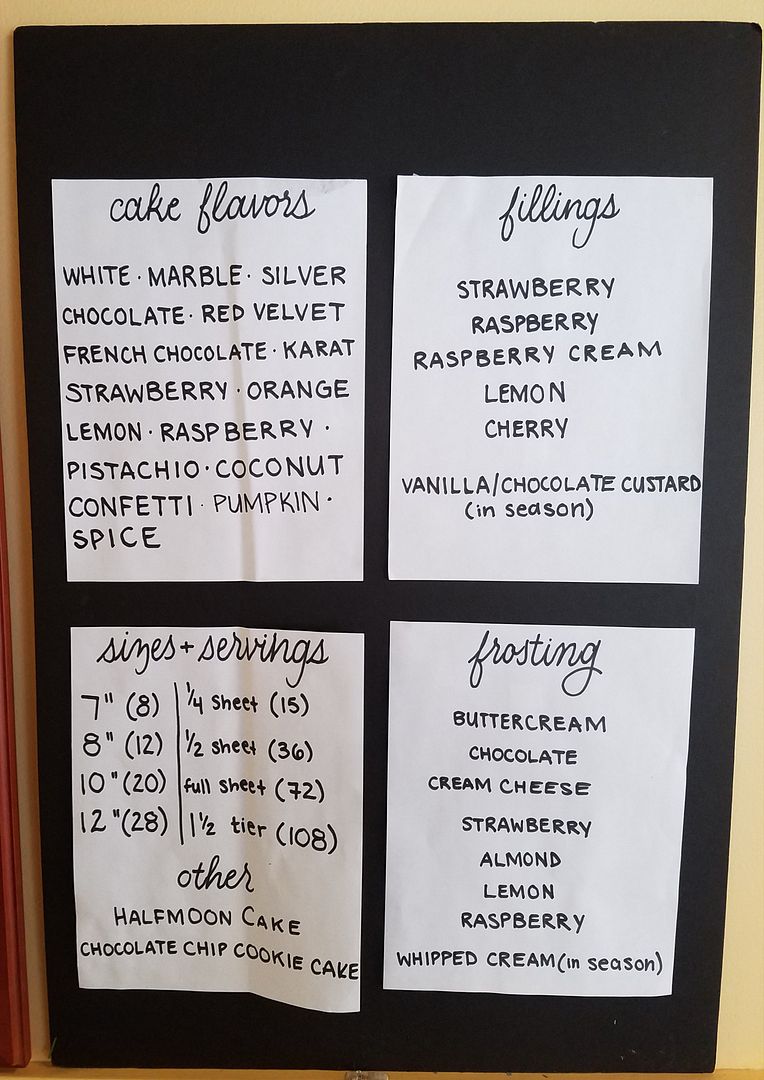 cake flavors
WHITE · MARBLE · SILVER
CHOCOLATE · RED VELVET
FRENCH CHOCOLATE · KARAT
STRAWBERRY · ORANGE
LEMON · RASPBERRY ·
PISTACHIO · COCONUT
CONFETTI · PUMPKIN ·
SPICE
fillings
STRAWBERRY
RASPBERRY
RASPBERRY CREAM
LEMON
CHERRY
VANILLA/CHOCOLATE CUSTARD
(in season)
sizes + servings
7" (8) | 1/4 sheet (15)
8" (12) | 1/2 sheet (36)
10" (20) | full sheet (72)
12" (28) | 1 1/2 tier (108)
other
HALFMOON CAKE
CHOCOLATE CHIP COOKIE CAKE
frosting
BUTTERCREAM
CHOCOLATE
CREAM CHEESE
STRAWBERRY
ALMOND
LEMON
RASPBERRY
WHIPPED CREAM (in season)